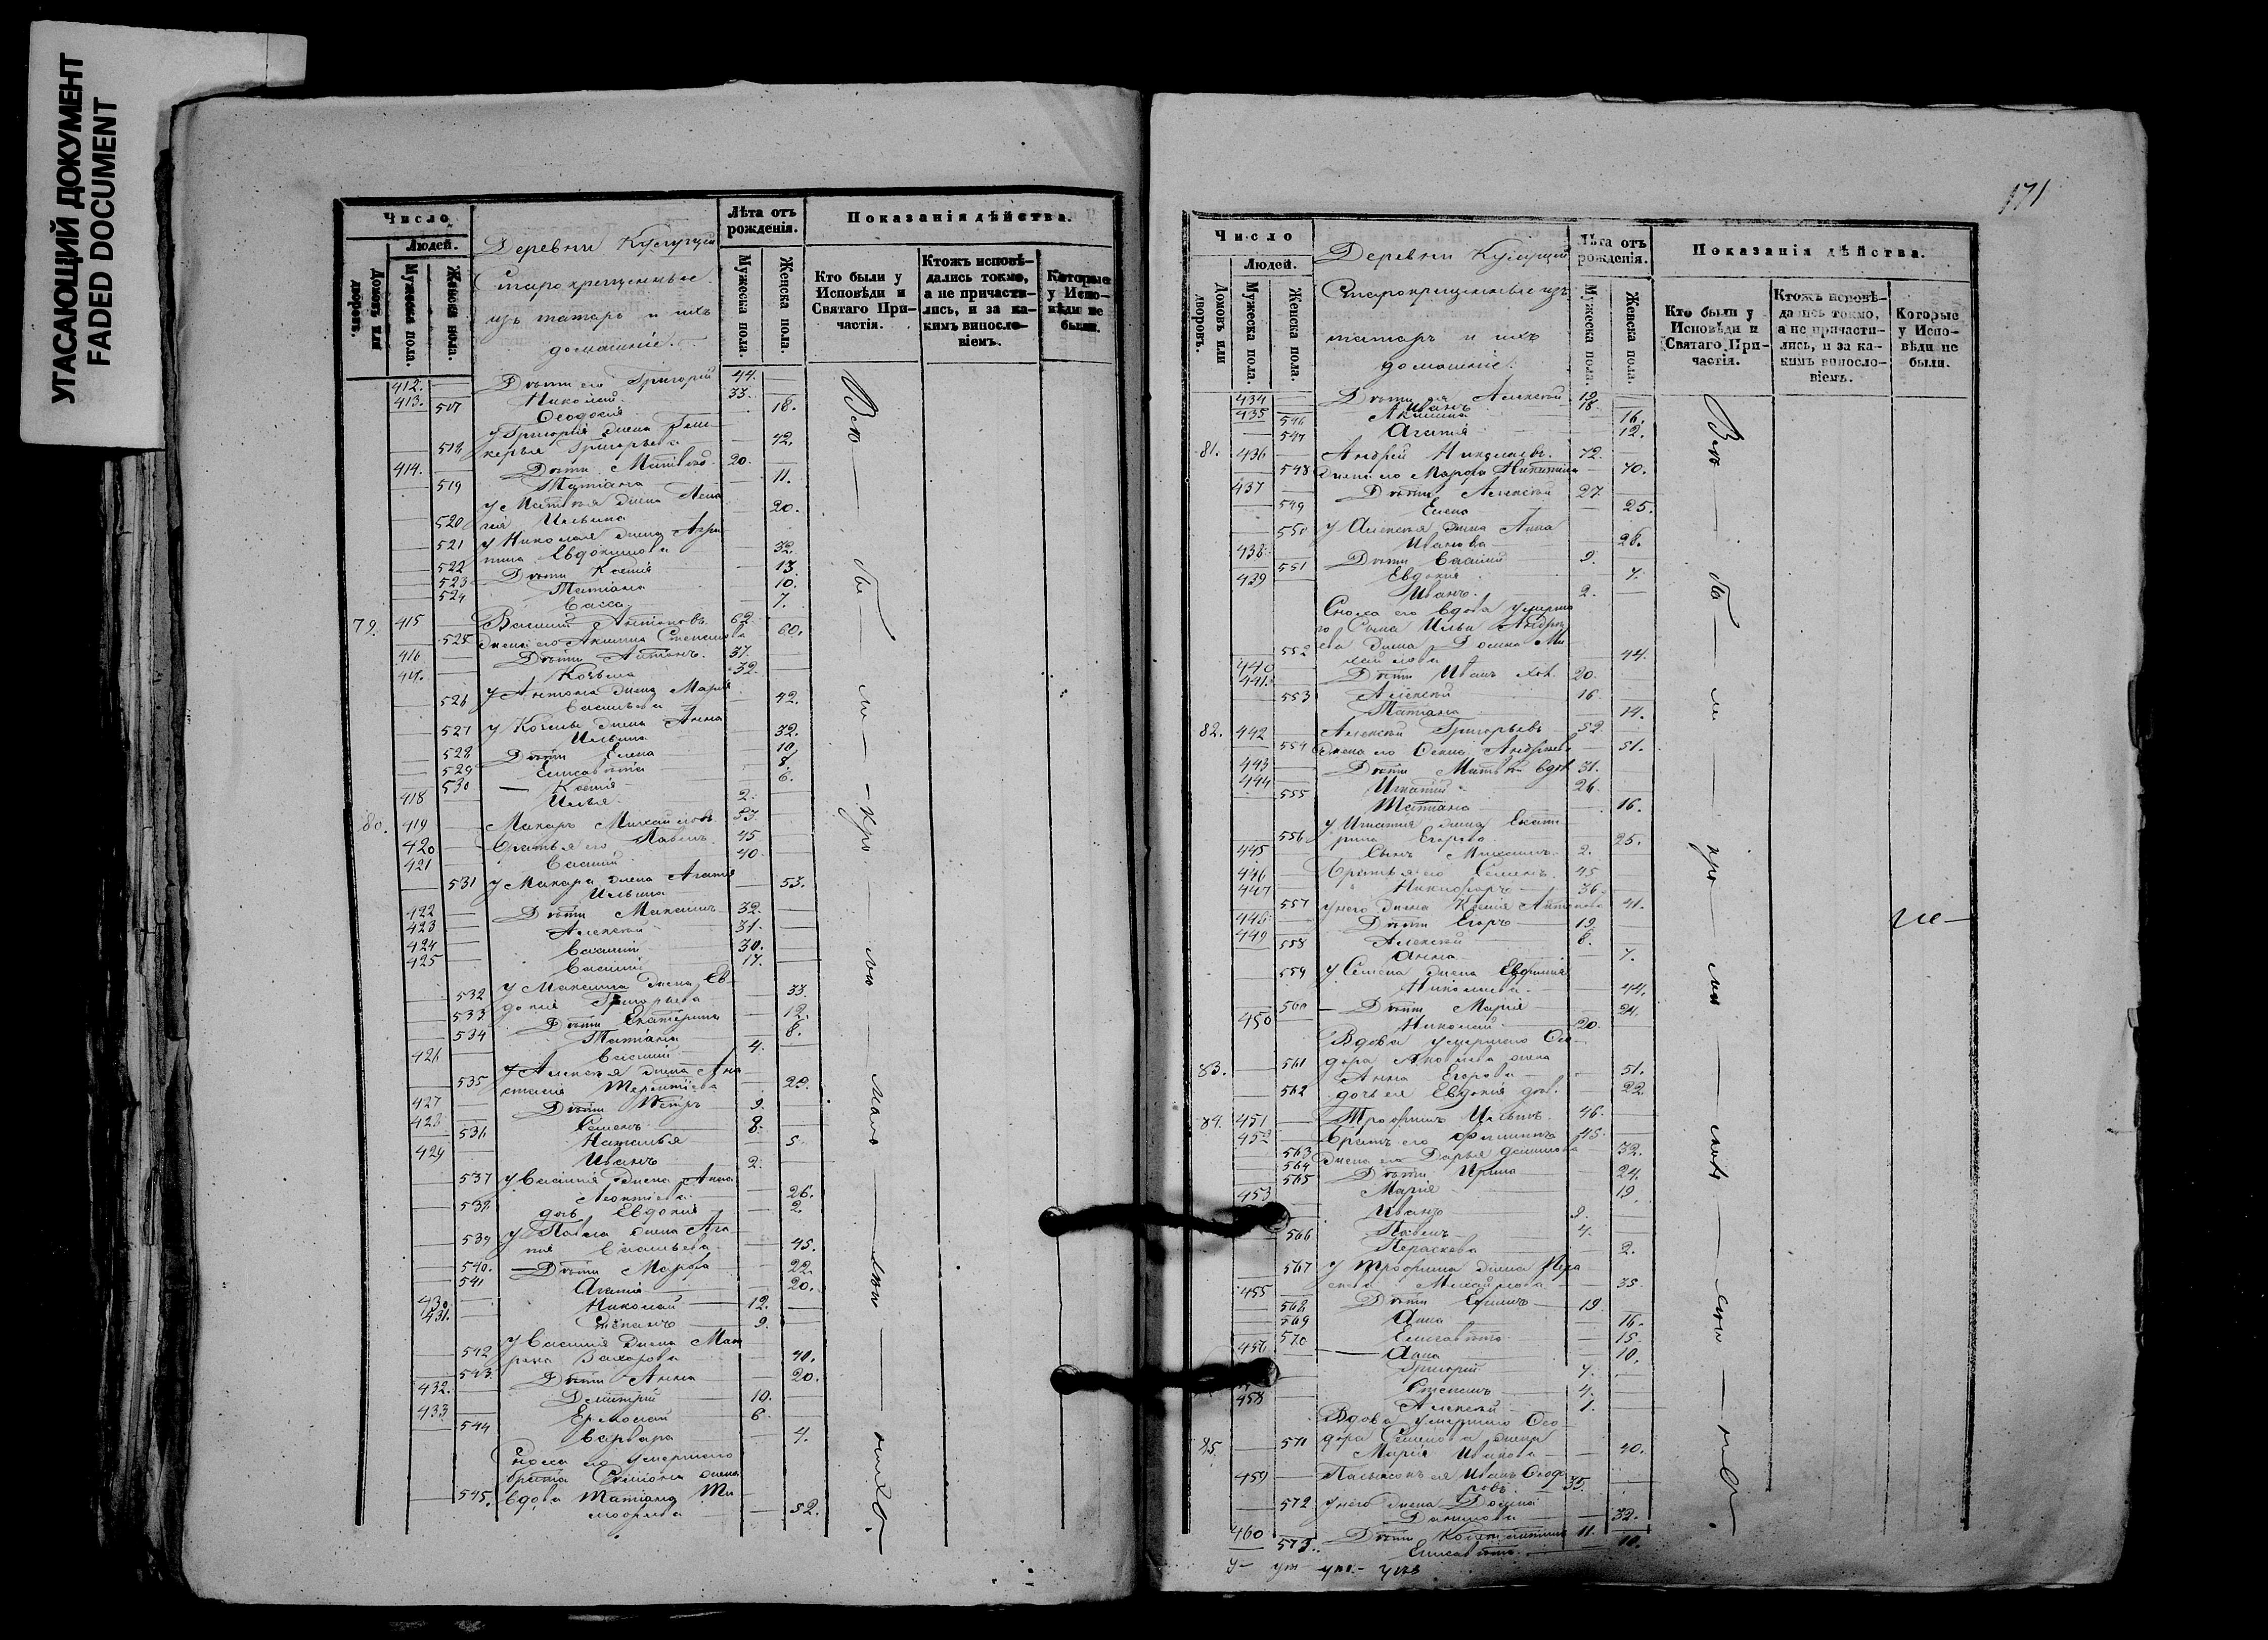 УГАСАЮЩИЙ ДОКУМЕНТ
FADED DOCUMENT
Число
Людей.
Домовъ или дворовъ.
Мужеска пола.
Женска пола.
Деревни
Старокрещенные
изъ татаръ и ихъ
домашніе.
Лѣта отъ рожденія.
Мужеска пола.
Женска пола.
Показанія дѣйства.
Кто были у Исповѣди и Святаго Причастія.
Ктожъ исповѣдались токмо, а не причастились, и за какимъ винословіемъ.
Которые у Исповѣди не были.
412. Дѣти его Григорій 44.
413. Николай 33.
507 Ѳеодосія 18.
У Григорія жена
518 Григорьева 42.
414. Дѣти Матвѣй 20.
519 Татіана 11.
У Матвѣя жена
520 Ильина 20.
521 У Николая жена Агри
пина Евдокимова 32.
522 Дѣти Ксенія 13.
523 Татіана 10.
524 Васса 7.
79. 415 Василій Антоновъ 62.
525 Жена его Акилина Степанова 60.
416 Дѣти Антонъ 37.
417. Козьма 32.
526 У Антона жена Марія
Васильева 42.
527 У Козьмы жена Анна
Ильина 32.
528 Дѣти Елена 10.
529 Елисавета 8.
530 Ксенія 6.
418 Илья 2.
80. 419 Макаръ Михайловъ 57.
420 Братья его Павелъ 45
421 Василій 40.
531 У Макара жена Агафія
Ильина 53.
422 Дѣти Максимъ 32.
423 Алексѣй 31.
424 Василій 30.
425 Василій 17.
532 У Максима жена Ев
докія Григорьева 33.
533 Дѣти Екатерина 12.
534 Татіана 8.
426 Василій 4.
535 У Алексѣя жена Ана
стасія Терентіева 28.
427 Дѣти Петръ 9.
428 Семенъ 8.
536 Наталья 5.
429 Иванъ 2.
537 У Василія жена Анна
Леонтіева 26.
538 дочь Евдокія 2.
539 У Павла жена Ага
пія Васильева 45.
540. Дѣти Марфа 22.
541 Агапія 20.
430. Николай 12.
431. Степанъ 9.
542 У Василія жена Мат
рена Захарова 40.
543 Дѣти Анна 20.
432. Димитрій 10.
433 Ермолай 6.
544 Варвара 4.
его умершаго
брата жена
545. вдова Татіана Ти
моѳеева 52.
171
Число
Людей.
Домовъ или дворовъ.
Мужеска пола.
Женска пола.
Деревни
Старокрещенные изъ
татаръ и ихъ
домашніе.
Лѣта отъ рожденія.
Мужеска пола.
Женска пола.
Показанія дѣйства.
Кто были у Исповѣди и Святаго Причастія.
Ктожъ исповѣдались токмо, а не причастились, и за какимъ винословіемъ.
Которые у Исповѣди не были.
434 Дѣти ея Алексѣй 19.
435 Иванъ 18.
546 Акилина 16.
547 Агапія 12.
81. 436 Андрей Николаевъ 72.
548 Жена его Марфа Никитина 70.
437 Дѣти Алексѣй 27.
549 Елена 25.
550 У Алексѣя жена Анна
Иванова 28.
438 Дѣти Василій 9.
551 Евдокія 7.
439 Иванъ 2.
Сноха его вдова умерша
го сына Ильи Андре
552 ева жена Домна Ми
хайлова 44.
440 Дѣти Иванъ хол. 20.
441. Алексѣй 16.
553 Татіана 14.
82. 442 Алексѣй Григорьевъ 52
554 Жена его Андреева 51.
443 Дѣти Матвѣй вдов. 31.
444 Игнатій 26.
555 Татіана 16.
У Игнатія жена Екате
556 рина Егорова 25.
445 Сынъ Михаилъ 2.
446 Братья его Семенъ 45
447 Никифоръ 36.
557 У него жена Ксенія Антонова 41.
448 Дѣти Егоръ 19.
449 Алексѣй 8.
558 Анна 7.
559 У Семена жена Евфимія
Николаева 44.
560 Дѣти Марія 24.
450 Николай 20.
Вдова умершаго Ѳео
83. 561 дора Яковлева жена
Анна Егорова 51.
562 дочь ея Евдокія дѣв. 22.
84. 451 Трофимъ Ильинъ 46.
452 Братъ его Филиппъ 45.
563 Жена его Дарья 32.
564 Дѣти Ирина 24.
565 Марія 19.
453 Иванъ 9.
Павелъ 4.
566 Пераскева 2.
567 У Трофима жена Пера
скева Михайлова 35.
455 Дѣти Ефимъ 19.
568 Анна 16.
569 Елисавета 15.
570 Анна 10.
456 Григорій 7.
Степанъ 4.
458 Алексѣй 1.
Вдова умершаго Ѳео
85. 571 дора Семенова жена
Марія Иванова 40.
459 Пасынокъ ея Иванъ Ѳеодо
ровъ 35.
572 У него жена Домна
Данилова 32.
460 Дѣти Константинъ 11.
573. Елисавета 10.